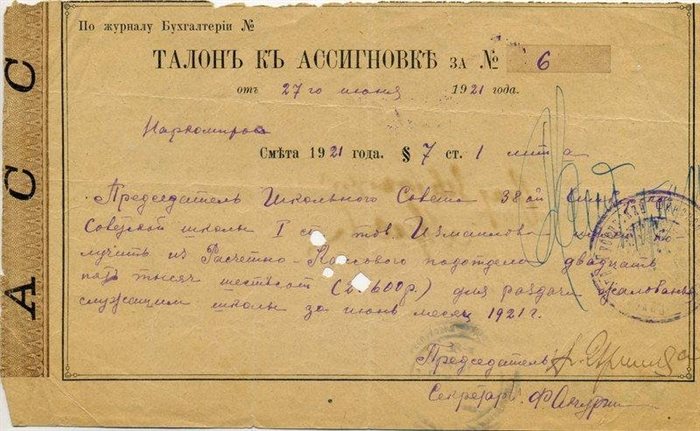 По журналу Бухгалтеріи №
ТАЛОНЪ КЪ АССИГНОВКѢ ЗА № 6
отъ 27го июня 1921 года.
Смѣта 1921 года. § 7 ст. 1 лит а
Председатель Школьного Совета 38ой
Советской школы I ст тов Измаилова
лучить из Расчетно-Кассового подотдела двадцать
пять тысяч шестьсот (2 600р.) для раздачи жалованья
служащим школы за июнь месяц 1921 г.
Председатель
Секретарь
АСС